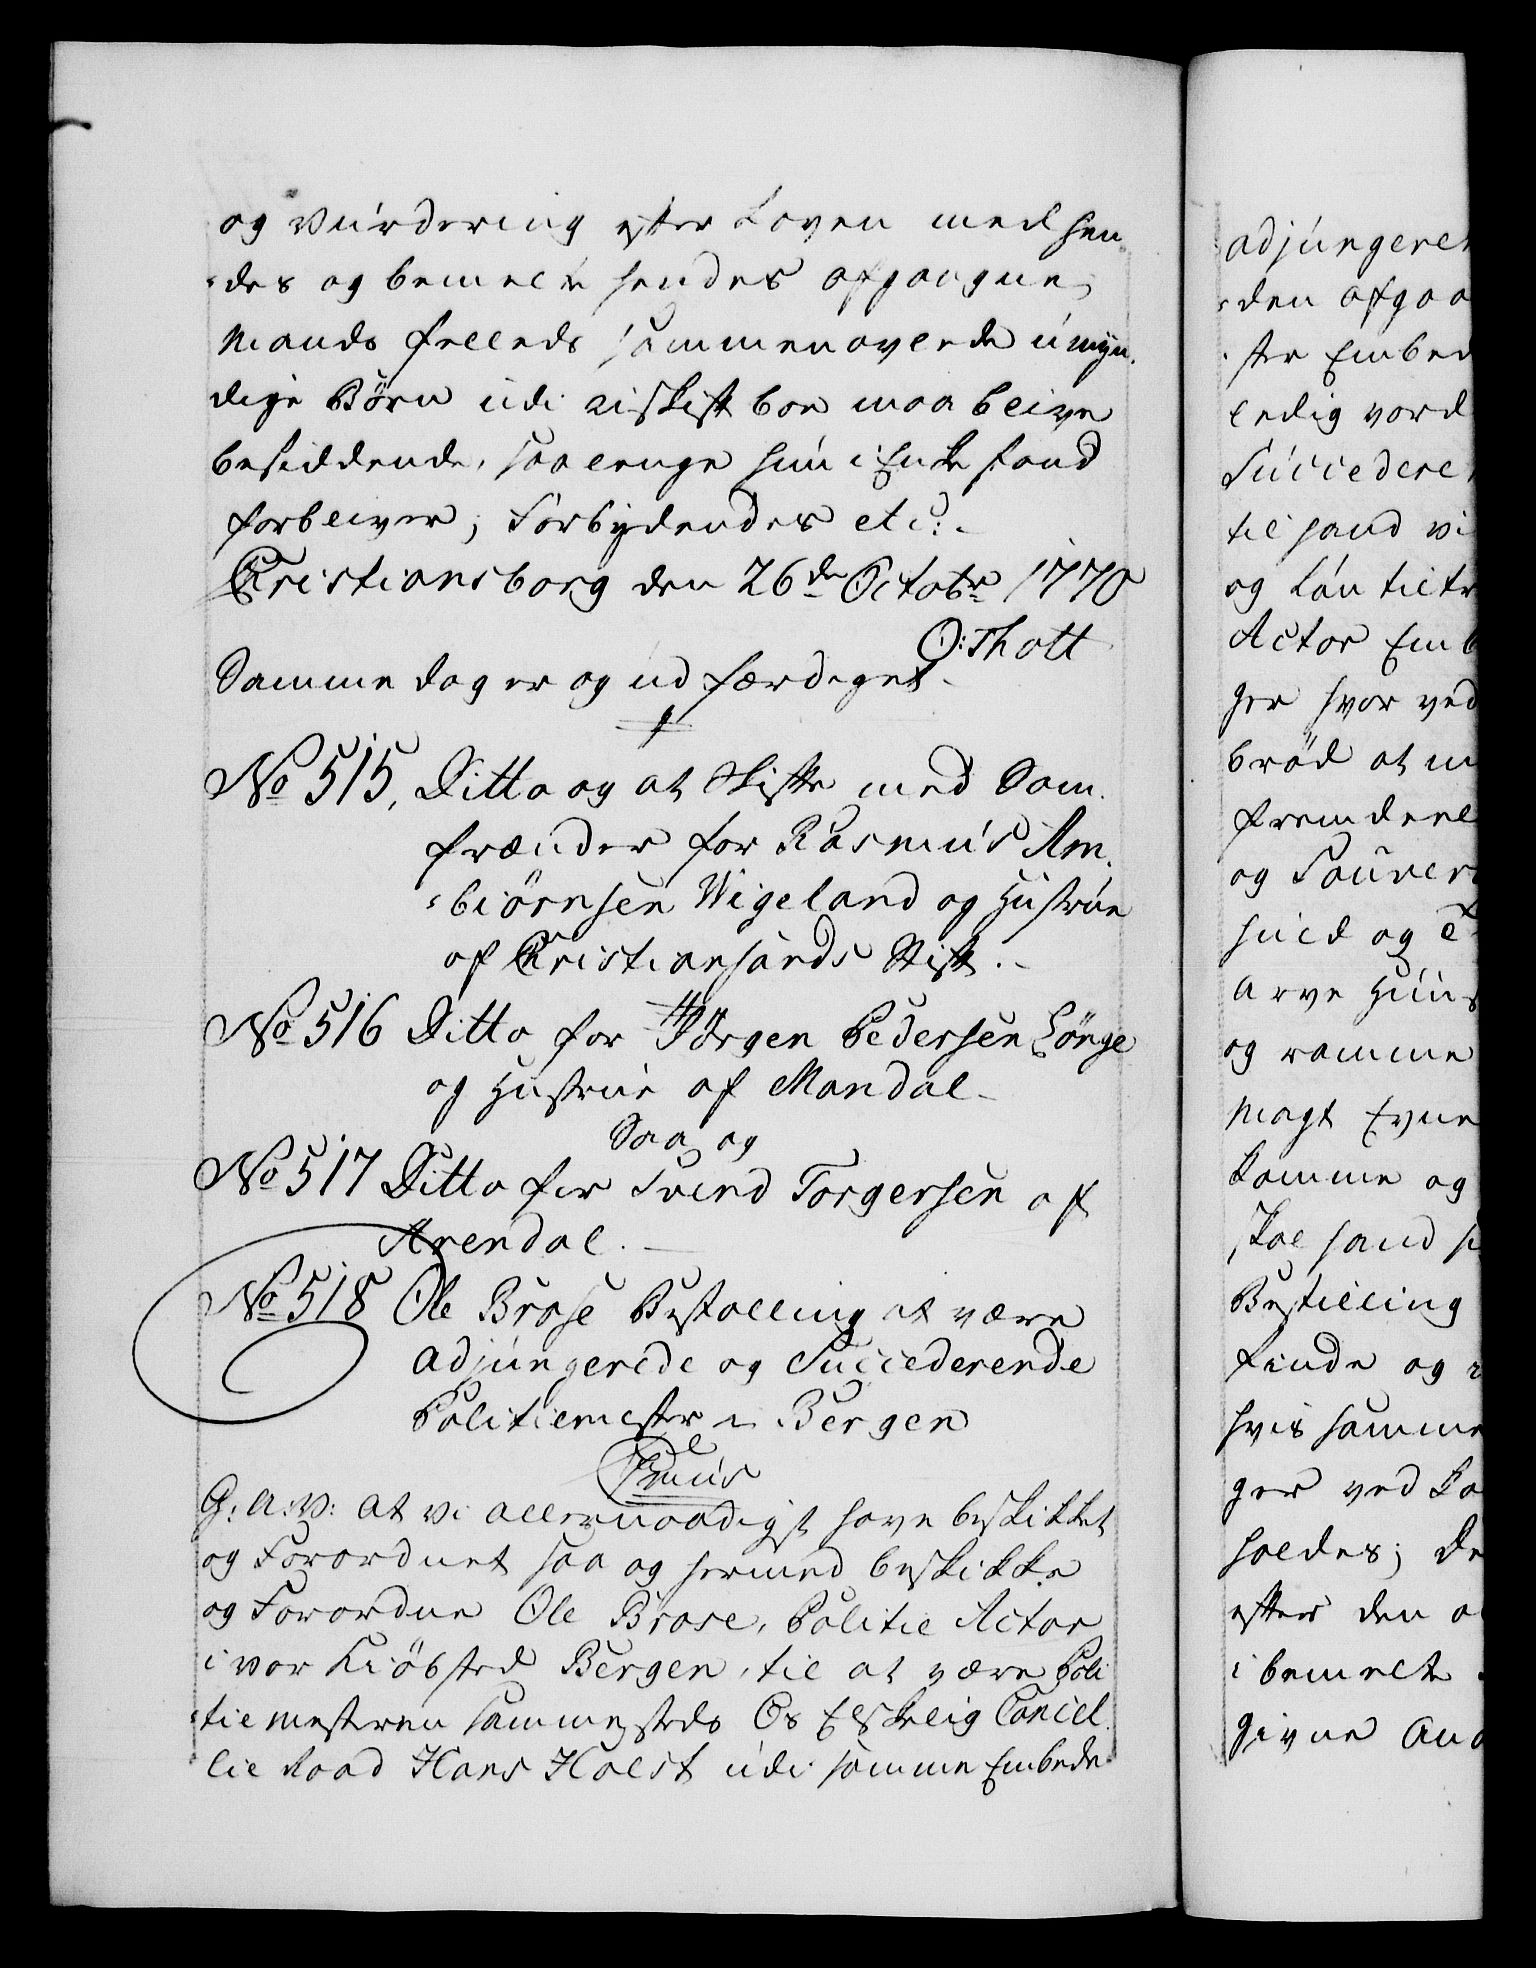 og Vurdering efter Loven med hen
des og bemelte hendes afgangne
Mands fælleds sammenavlede umyn
dige Børn udi uskift boe maa blive
besiddende, saalenge hun i Enke sand
forbliver; Forbydendes etc:
Christiansborg den 26de Octobr 1770
O: Thott
Samme dag er og ud færdiget.
No 515, Ditto og at skifte med Sam
frænder for Rasmus Am
biørnsen Wigeland og Hustrue
af Christiansands Stift.
No 516 Ditto for Jørgen Pedersen Lønge
og Hustrue af Mandal
Saa og
No 517 Ditto for Svend Torgersen af
Arendal.
No 518 Ole Brose Bestalling at være
adjungerede og Succederende
Politiemester i Bergen
G: A: V: at vi allernaadigst have beskikket
og Forordnet saa og hermed beskikke
og Forordne Ole Brose, Politie Actor
i vor Kiöbsted Bergen, til at være Poli
tiemesteren sammesteds Os Elskelig Cancel
lie Raad Hans Holst udi samme Embede
adjungeret
den afgaa
ste Embed
ledig vord
Succedere
til hand vi
og Løn tiltr
Actor Emb
ger hvor ved
bröd at m
fremdeel
og Souver
huld og t
Arve Huus
og ramme
Magt Evne
komme og
skal hand s
Bestilling
finde og
hvis samme
ger ved ko
holdes; de
efter den a
i bemelte
givne And